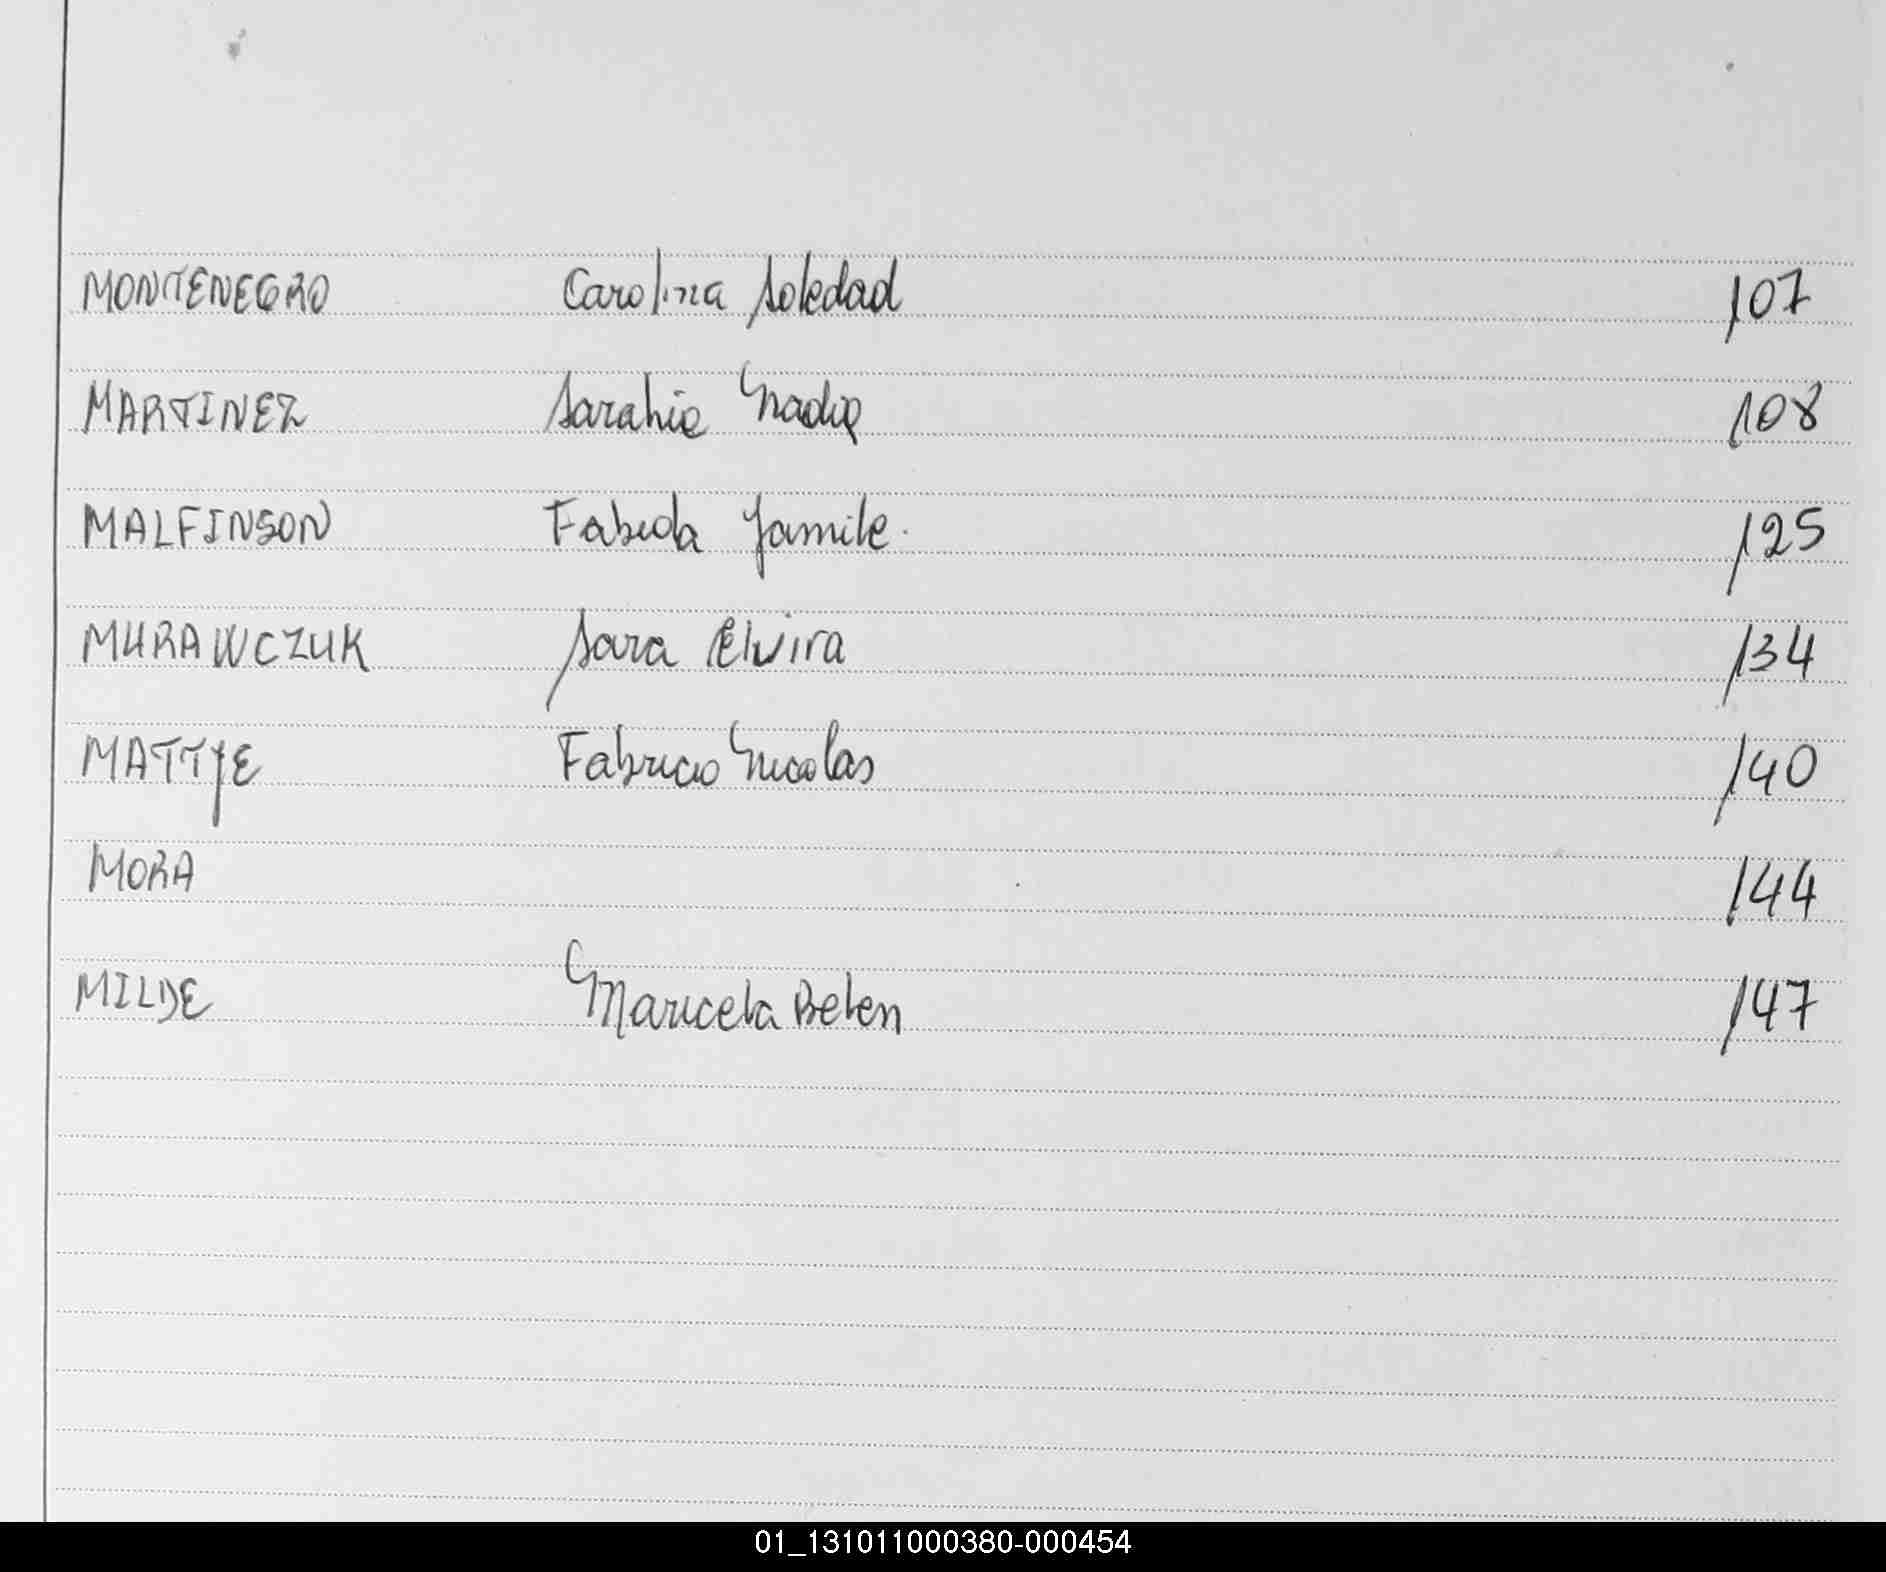 MONTENEGRO Carolina Soledad 107
MARTINEZ Sarahie Nadia 108
MALFINSON Fabiola Yamile. 125
MURAWCZUK Sara Elvira 134
MATTJE Fabricio Nicolas 140
MORA 144
MILDE Maricela Belen 147
01_131011000380-000454